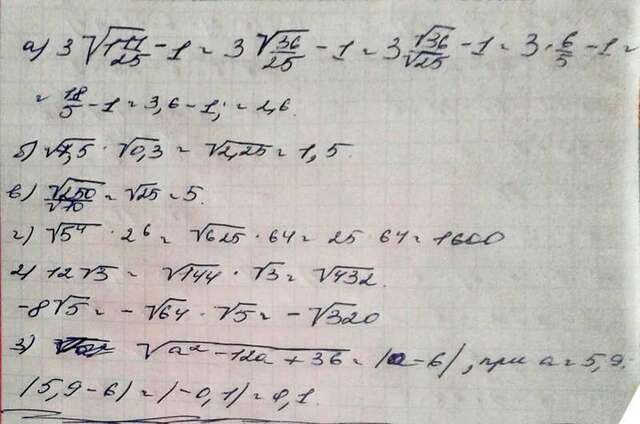 а) 3 √(1 11/25) - 1 = 3 √(36/25) - 1 = 3 √36/√25 - 1 = 3 · 6/5 - 1 =
= 18/5 - 1 = 3,6 - 1; = 2,6.
б) √7,5 · √0,3 = √2,25 = 1,5.
в) √250/√10 = √25 = 5.
г) √5⁴ · 2⁶ = √625 · 64 = 25 · 64 = 1600
2) 12√3 = √144 · √3 = √432.
-8√5 = -√64 · √5 = -√320
3) √a² - 12a + 36 = |a - 6|, при a = 5,9.
|5,9 - 6| = |-0,1| = 0,1.